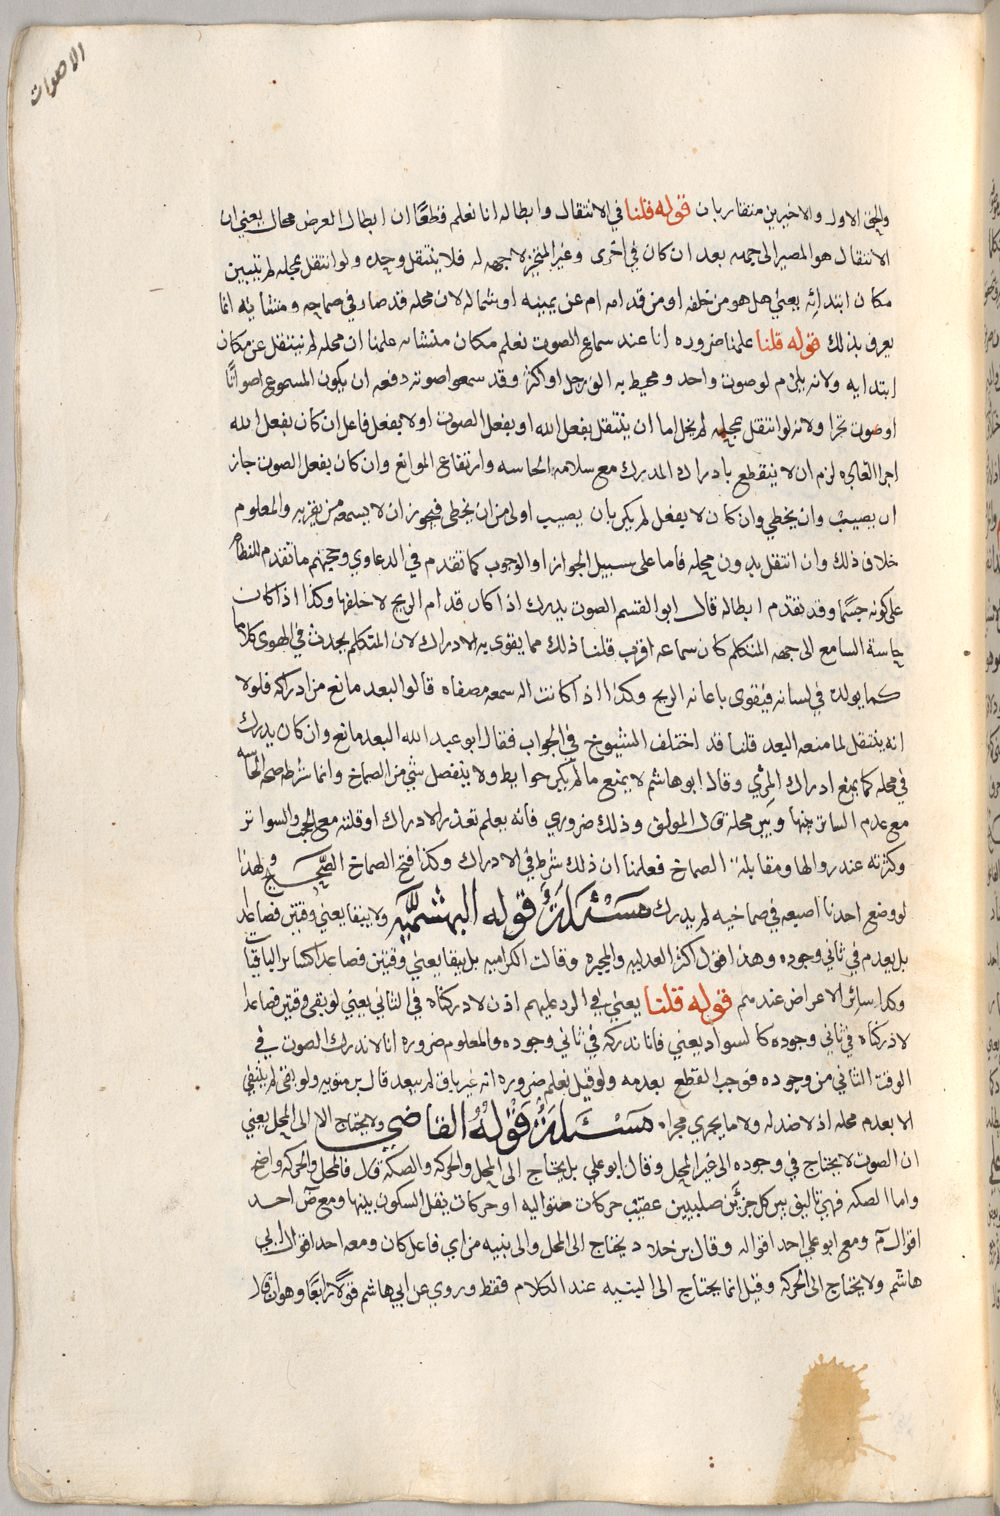 الاصوات
والحق الاول والاخيرين متقاربان قوله قلنا في الانتقال وابطاله انا نعلم قطعًا ان ابطال العرض محال يعني ان
الانتقال هو المصير الى جهه بعد ان كان في اخرى وغير المتحيز لا جهه له فلا ينتقل وحده ولو انتقل بمحله لم يتبين
مكان ابتدائه يعني هل هو من خلفه او من قدامه ام عن يمينه او شماله لان محله قد صار في صماخه ومنشايه انما
يعرف بذلك قوله قلنا علمنا ضروره انا عند سماع الصوت نعلم مكان منشائه علمنا ان محله لم ينتقل عن مكان
ابتدايه ولانه يلزم لو صوت واحد ومحيط به الف رجل او اكثر وقد سمعوا صوته دفعه ان يكون المسموع اصواتًا
او صوت تجزا ولانه لو انتقل بمحله لم يخل اما ان ينتقل بفعل الله او بفعل الصوت او لا بفعل فاعل ان كان بفعل الله
اجرا العاده لزم ان لا ينقطع بادراك المدرك مع سلامه الحاسه وارتفاع الموانع وان كان بفعل الصوت جاز
ان يصيب وان يخطي وان كان لا بفعل لم يكن بان يصيب اولى من ان يخطى فيجوز ان لا يسمعه من بقربه والمعلوم
خلاف ذلك وان انتقل بدون محله فاما على سبيل الجواز او الوجوب كما تقدم في الدعاوي وحجتهم ما تقدم للنظام
على كونه جسمًا وقد تقدم ابطاله قال ابو القسم الصوت يدرك اذا كان قدام الريح لا خلفها وكذا اذا كان
حاسة السامع الى جهه المتكلم كان سماعه اقرب قلنا ذلك مما يقوى به الادراك لان المتكلم يحدث في الهوى كلامًا
كما يولده في لسانه فيقوى باعانه الريح وكذا اذا كانت اله سمعه مصفاه قالوا البعد مانع من ادراكه فلولا
انه ينتقل لما منعه البعد قلنا قد اختلف الشيوخ في الجواب فقال ابو عبد الله البعد مانع وان كان يدرك
في محله كما يمنع ادراك المرئي وقال ابو هاشم لا يمنع ما لم يكن حوايط ولا ينفصل شي من الصماخ وانما شرطه صحه الحاسه
مع عدم الساتر بينها وبين محله قال المولف وذلك ضروري فانه يعلم تعذر الادراك او قلته مع الحجب والسواتر
وكثرته عند زوالها ومقابلة الصماخ فعلمنا ان ذلك شرط في الادراك وكذا فتح الصماخ الصحيح ولهذا
لو وضع احدنا اصبعه في صماخيه لم يدرك مسئلة قوله البهشميه ولا يبقا يعني وقتين فصاعدا
بل يعدم في ثاني وجوده وهذا قول اكثر العدليه والمجبره وقالت الكراميه بل يبقا يعني وقتين فصاعدا كسائر الباقيات
وكذا سائر الاعراض عندهم قوله قلنا يعني في الرد عليهم اذن لادركناه في الثاني يعني لو بقى وقتين فصاعدا
لادركناه في ثاني وجوده كالسواد يعني فانا ندركه في ثاني وجوده والمعلوم ضروره انا لا ندرك الصوت في
الوقت الثاني من وجوده فوجب القطع بعدمه ولو قيل نعلم ضروره انه غير باق لم يبعد قال بن متويه ولو بقى لم ينتفي
الا بعدم محله اذ لا ضد له ولا ما يجري مجراه مسئلة قوله القاضي ولا يحتاج الا الى المحل يعني
ان الصوت لا يحتاج في وجوده الى غير المحل وقال ابو علي بل يحتاج الى المحل والحركه والصكه قال فالمحل والحركه واضح
واما الصكه فهي تاليف بين كل جزئين صلبين عقيب حركات متواليه او حركات يقل السكون بينها ومع ض احد
اقوال م ومع ابو علي احد اقواله وقال بن خلاد يحتاج الى المحل والى بنيه من اي فاعل كان ومعه احد اقوال ابي
هاشم ولا يحتاج الى الحركه وقيل انما يحتاج الى البنيه عند الكلام فقط وروي عن ابي هاشم قولًا رابعًا وهو ان قال